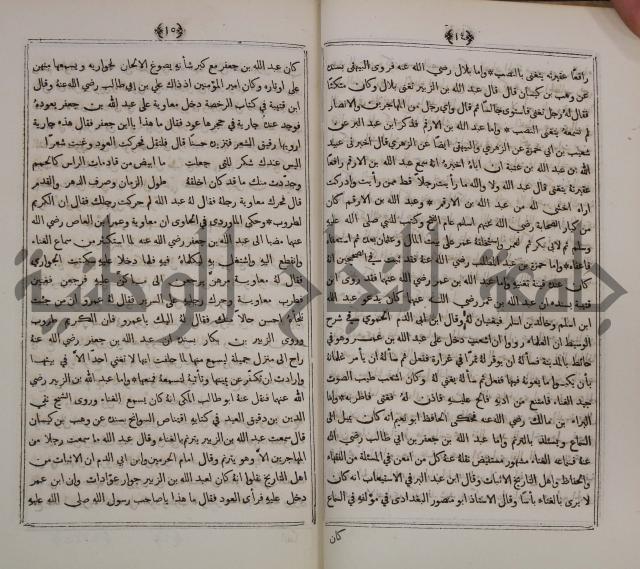 ﴿١٤﴾
رافعًا عقيرته يتغنى بالنصب * واما بلال رضي الله عنه فروى البيهقي بسنده
عن وهب بن كيسان قال قال عبد الله بن الزبير تغنى بلال وكان متكئًا
فقال له رجل تغنى فاستوى جالسًا ثم قال واي رجل من المهاجرين والانصار
لم نسمعه يتغنى النصب * واما عبد الله بن الارقم فذكر ابن عبد البر عن
شعيب بن ابي حمزة عن الزهري والبيهقي ايضًا عن الزهري قال اخبرني عبيد
الله بن عبد الله بن عتبة ان اباه اخبره انه سمع عبد الله بن الارقم رافعًا
عقيرته يتغنى قال عبد الله ولا والله ما رأيت رجلًا قط ممن رأيت وادركت
اراه اخشى لله من عبد الله بن الارقم * وعبد الله بن الارقم كان
من كبار الصحابة رضي الله عنهم اسلم عام الفتح وكتب للنبي صلى الله عليه
وسلم ثم لابي بكر ثم لعمر واستخلفه عمر على بيت المال وعثمان بعده ثم استعفاه
فاعفاه * واما حمزة بن عبد المطلب رضي الله عنه فقد ثبت في الصحيحين انه
كان عنده قينة تغنيه واما عبد الله بن عمر رضي الله عنهما فقد روى ابن
قتيبة بسنده ان عبد الله بن عمر رضي الله عنهما كان يدعو عبد الله
ابن اسلم وخالد بن اسلم فيغنيان له وقال ابن ابي الدم الحموي في شرح
الوسيط ان الفقهاء رووا ان اشعب دخل على عبد الله بن عمر وهو في
حائط بالمدينة فسأله ان يوقر له تمرًا في غرارة ففعل ثم سأله ان يأمر غلمانه
بان يكسوا ما يعونه فيها ففعل ثم سأله ان يغني له وكان اشعب طيب الصوت
جيد الغناء فامتنع من اذنه فالح عليه فاذن له فغنى فاطربه * واما
البراء بن مالك رضي الله عنه فحكى الحافظ ابو نعيم انه كان يميل الى
السماع ويستلذ بالترنم واما عبد الله بن جعفر بن ابي طالب رضي الله
عنه فسماعه الغناء مشهور مستفيض نقله عنه كل من امعن في المسئلة من الفقهاء
والحفاظ واهل التاريخ الاثبات وقال ابن عبد البر في الاستيعاب انه كان
لا يرى بالغناء بأسًا وقال الاستاذ ابو منصور البغدادي في مؤلفه في السماع
كان
﴿١٥﴾
كان عبد الله بن جعفر مع كبر شأنه يصوغ الالحان لجواريه ويسمعها منهن
على اوتاره وكان امير المؤمنين اذ ذاك علي بن ابي طالب رضي الله عنه وقال
ابن قتيبة في كتاب الرخصة دخل معاوية على عبد الله بن جعفر يعوده
فوجد عنده جارية في حجرها عود فقال ما هذا يا ابن جعفر فقال هذه جارية
ارويها رقيق الشعر فتزيده حسنًا قال فلتقل فحركت العود وغنت شعرًا
اليس عندك شكر للتي جعلت ما ابيض من قادمات الراس كالحمم
وجددت منك ما قد كان اخلقه طول الزمان وصرف الدهر والقدم
قال فحرك معاوية رجله فقال له عبد الله لم حركت رجلك فقال ان الكريم
لطروب * وحكى الماوردي في الحاوي ان معاوية وعمرو بن العاص رضي الله
عنهما مضيا الى عبد الله بن جعفر رضي الله عنه لما استكثر من سماع الغناء
وانقطع اليه واشتغل به ليكلماه فيه فلما دخلا عليه سكتت الجواري
فقال له معاوية مرهن يرجعن الى ما كن عليه فرجعن فغنين
فطرب معاوية وحرك رجليه على السرير فقال له عمرو ان من جئت
تلحاه احسن حالًا منك فقال له اليك يا عمرو فان الكريم طروب
وروى الزبير بن بكار بسنده ان عبد الله بن جعفر رضي الله عنه
راح الى منزل جميلة ليسمع منها لما حلفت انها لا تغني احدًا الا في بيتها
وارادت ان تكفر عن يمينها وتأتيه لتسمعه فمنعها * واما عبد الله بن الزبير رضي
الله عنهما فنقل عنه ابو طالب المكي انه كان يسمع الغناء وروى الشيخ تقي
الدين بن دقيق العيد في كتابه اقتناص السوانح بسنده عن وهب بن كيسان
قال سمعت عبد الله بن الزبير يترنم بالغناء وقال عبد الله ما سمعت رجلا من
المهاجرين الا وهو يترنم وقال امام الحرمين وابن ابي الدم ان الاثبات من
اهل التاريخ نقلوا انه كان لعبد الله بن الزبير جوار عوّادات وان ابن عمر
دخل عليه فرأى العود فقال ما هذا يا صاحب رسول الله صلى الله عليه
جامعة النجاح الوطنية